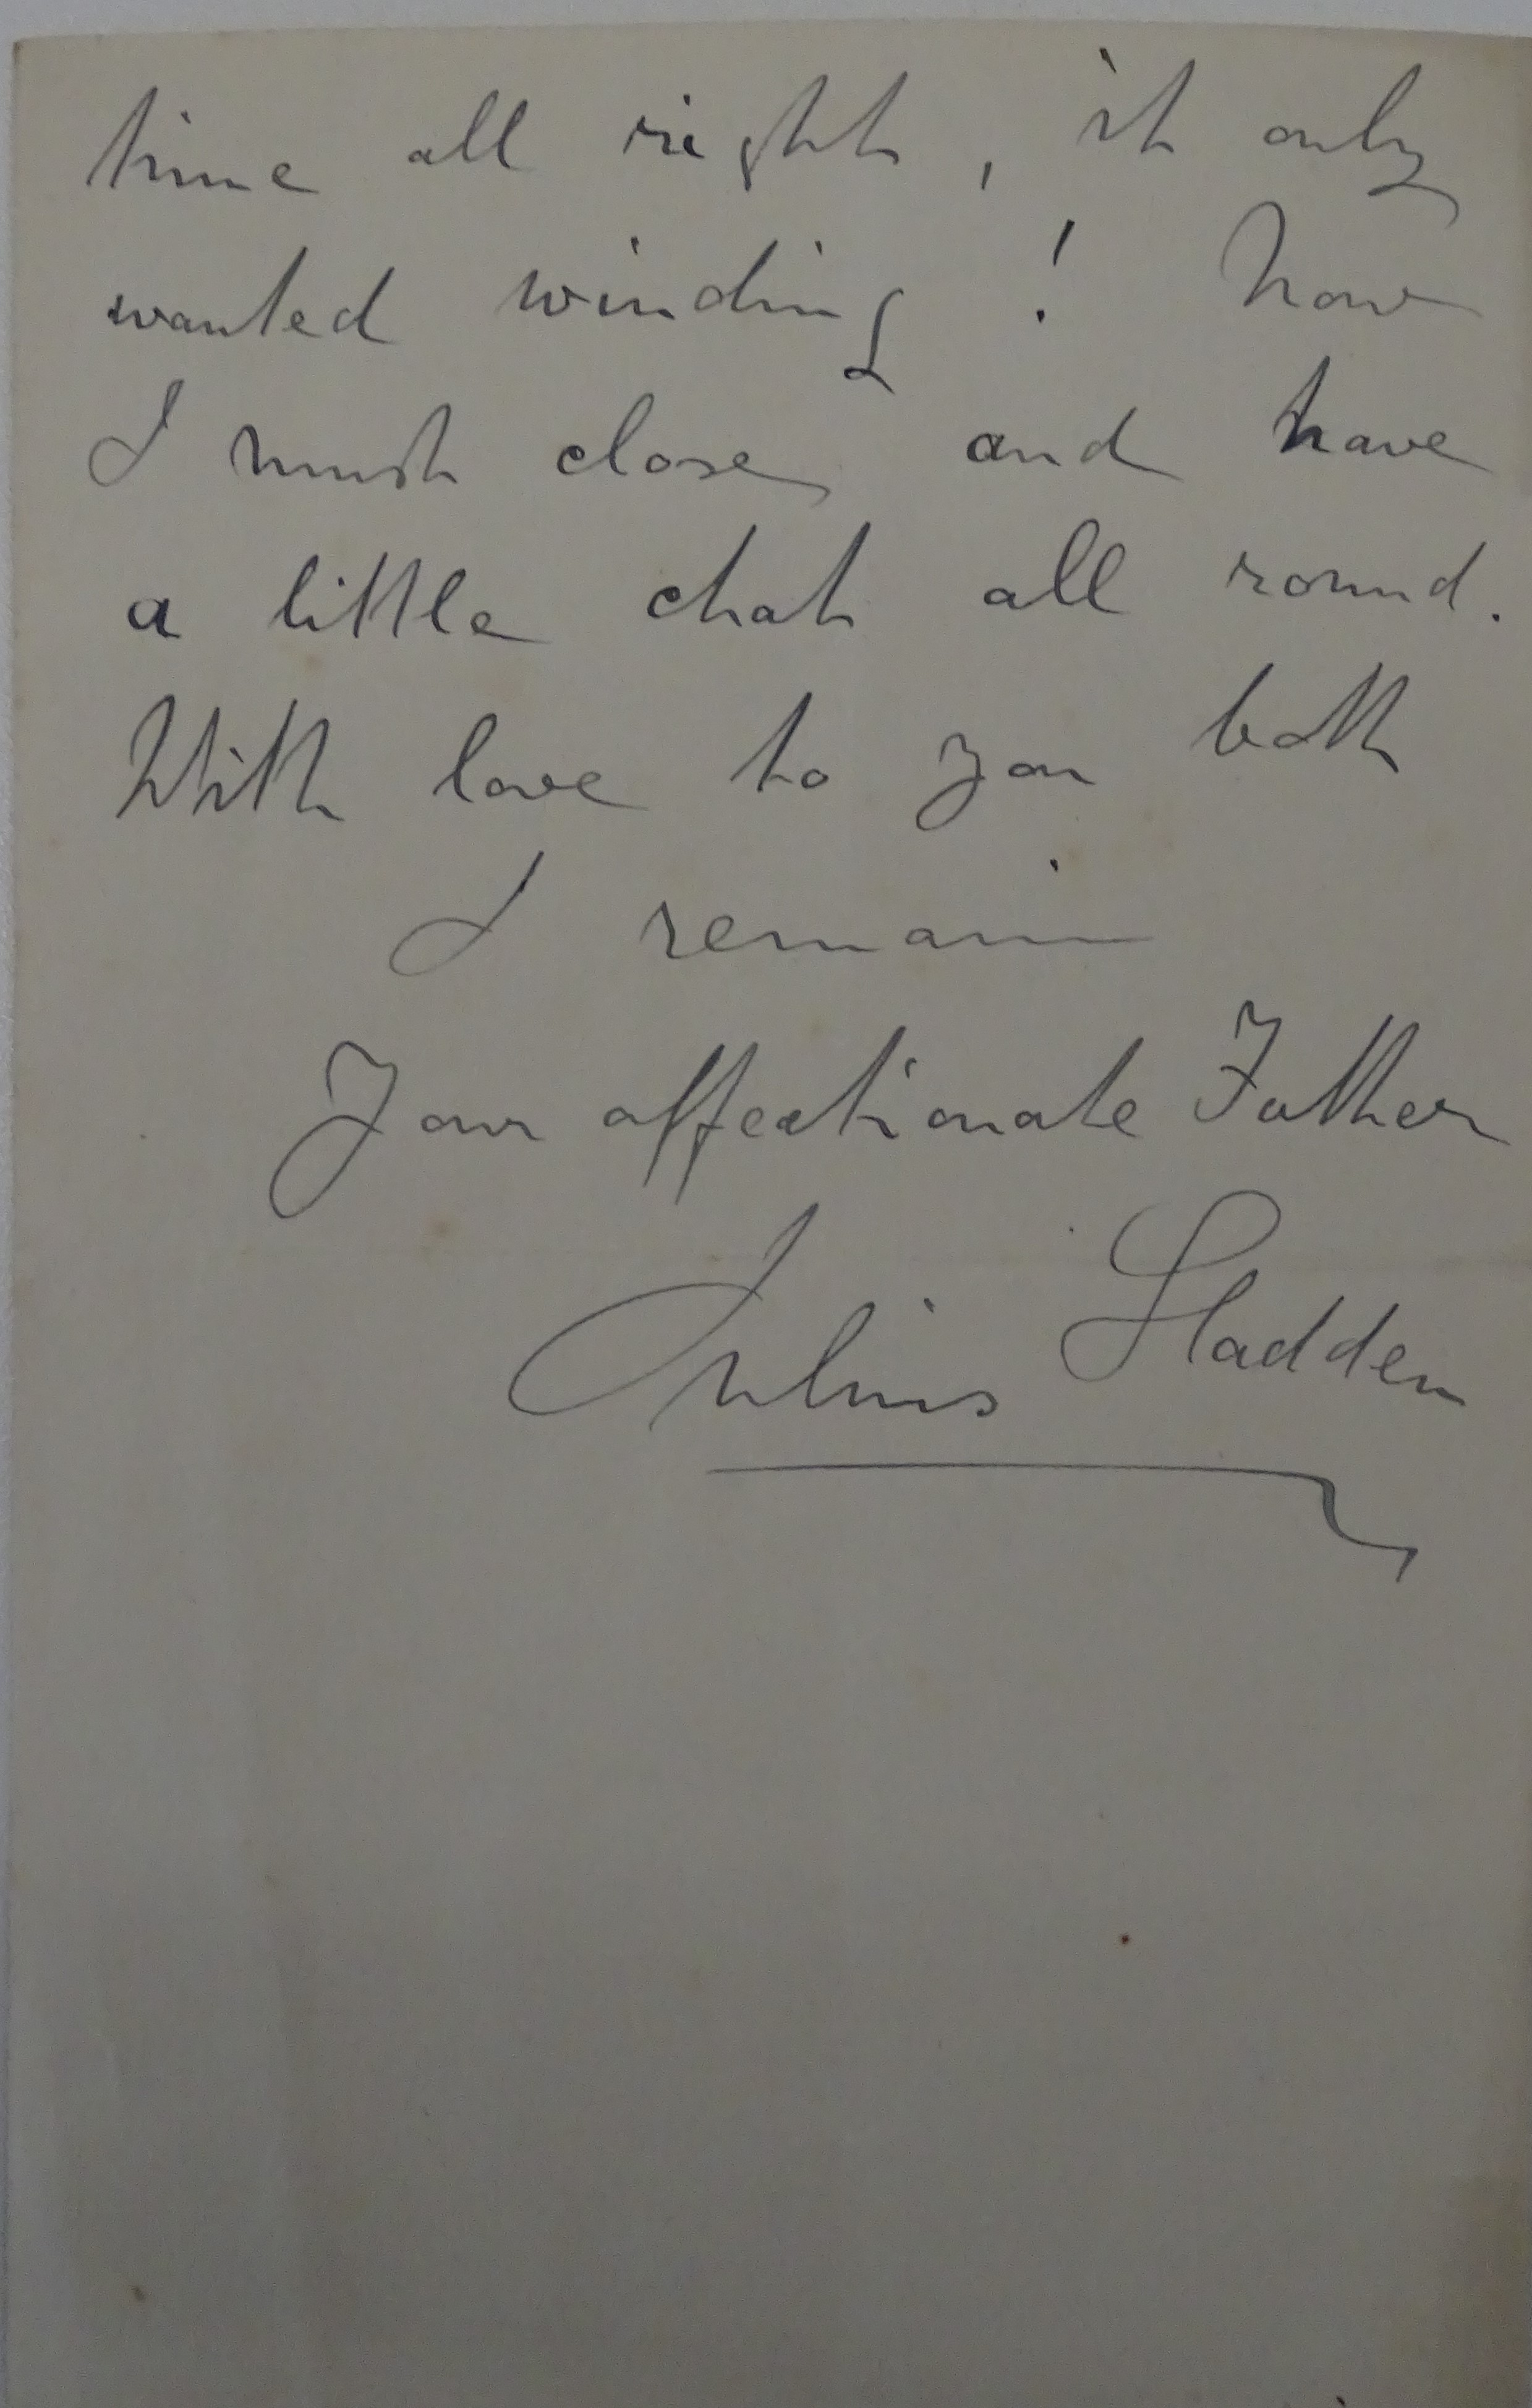 time all right, it only
wanted winding! Now
I must close, and have
a little chat all round.
With love to you both
I remain
Your affectionate Father
Julius Sladden